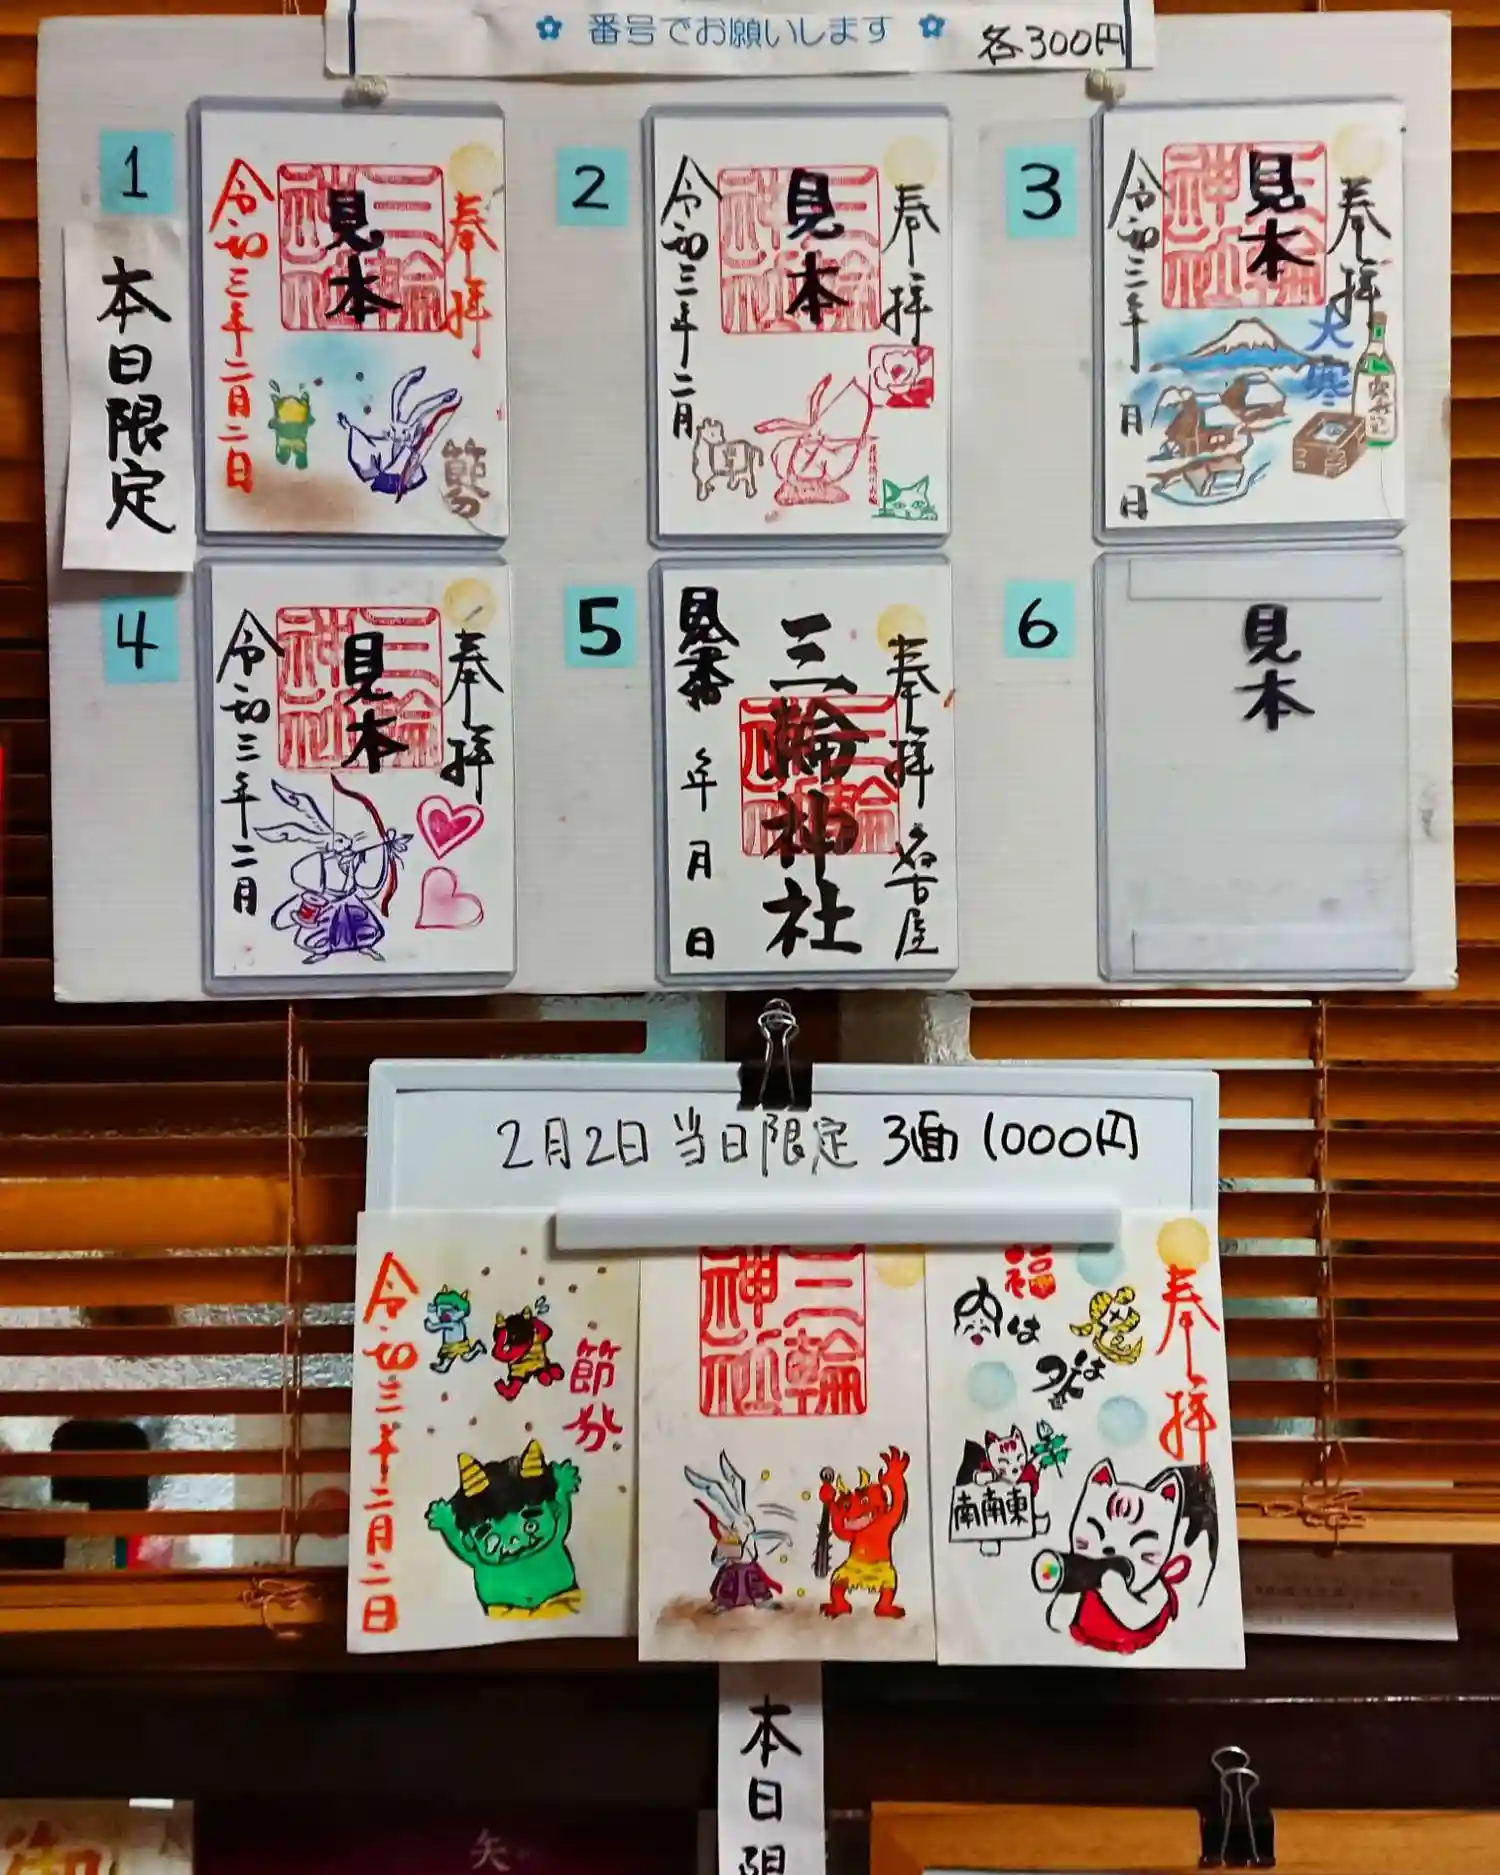 番号でお願いします 各300円
1
本日限定
奉拝
三輪神社
見本
節分
令和三年二月二日
2
奉拝
三輪神社
見本
令和三年二月
3
奉拝
三輪神社
見本
大寒
令和三年 月 日
4
奉拝
三輪神社
見本
令和三年二月
5
奉拝 名古屋
三輪神社
三輪神社
年 月 日
6
見本
2月2日 当日限定 3面 1000円
奉拝
福は内
鬼は外
南南東
三輪神社
節分
令和三年二月二日
本日限
矢
御